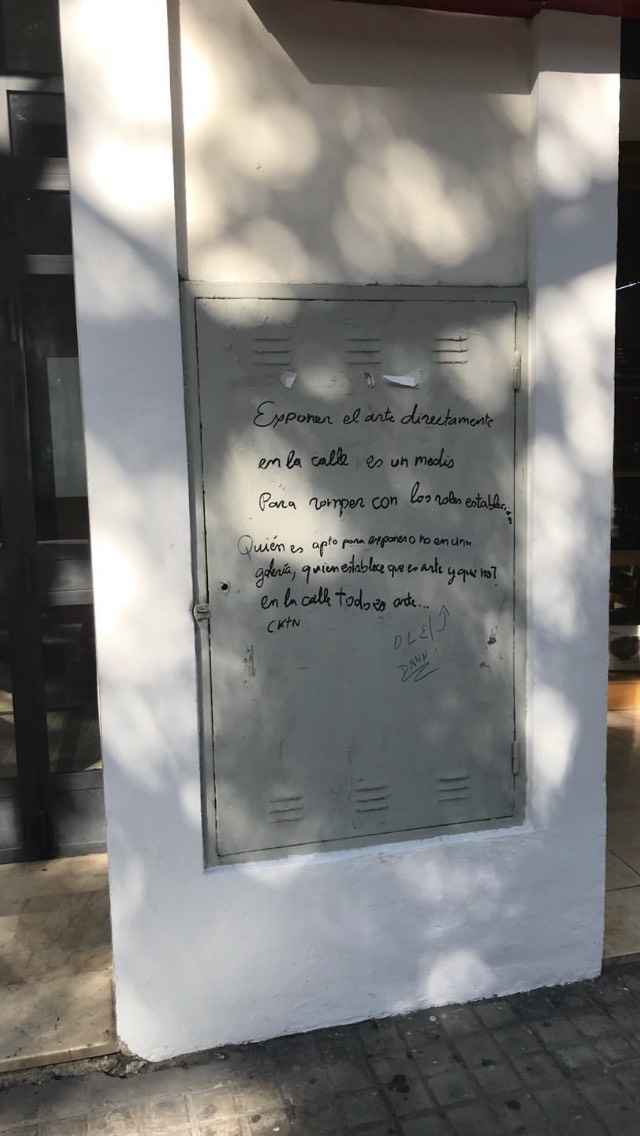 Exponer el arte directamente
en la calle es un medio
Para romper con los roles establecidos
Quién es apto para exponer o no en una
galería, quien establece que es arte y que no?
en la calle Todo es arte...
CKTN
DLE
DMNN